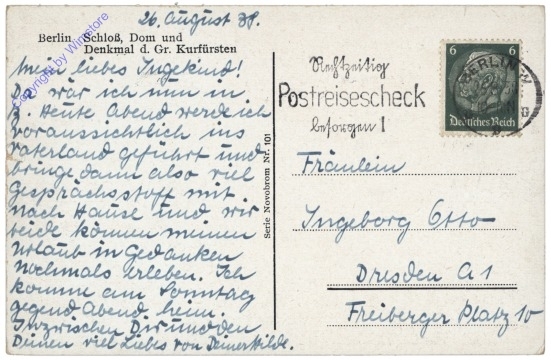 26. August 38.
Berlin Schloß, Dom und
Denkmal d. Gr. Kurfürsten
Mein liebes Ingekind!
Da wär ich nun in
B. Heute Abend werde ich
voraussichtlich ins
Vaterland geführt und
bringe dann also viel
Gesprächsstoff mit
nach Hause und wir
beide können meinen
Urlaub in Gedanken
nochmals erleben. Ich
komme am Sonntag
gegend Abend heim.
Inzwischen Dir und den
Deinen viel Liebes von Deiner Hilde.
Serie Novobrom Nr. 101
Rechtzeitig
Postreisescheck
besorgen!
BERLIN
6 6
Deutsches Reich
Fräulein
Ingeborg Otto
Dresden A 1
Freiberger Platz 10
Copyright by Winstore